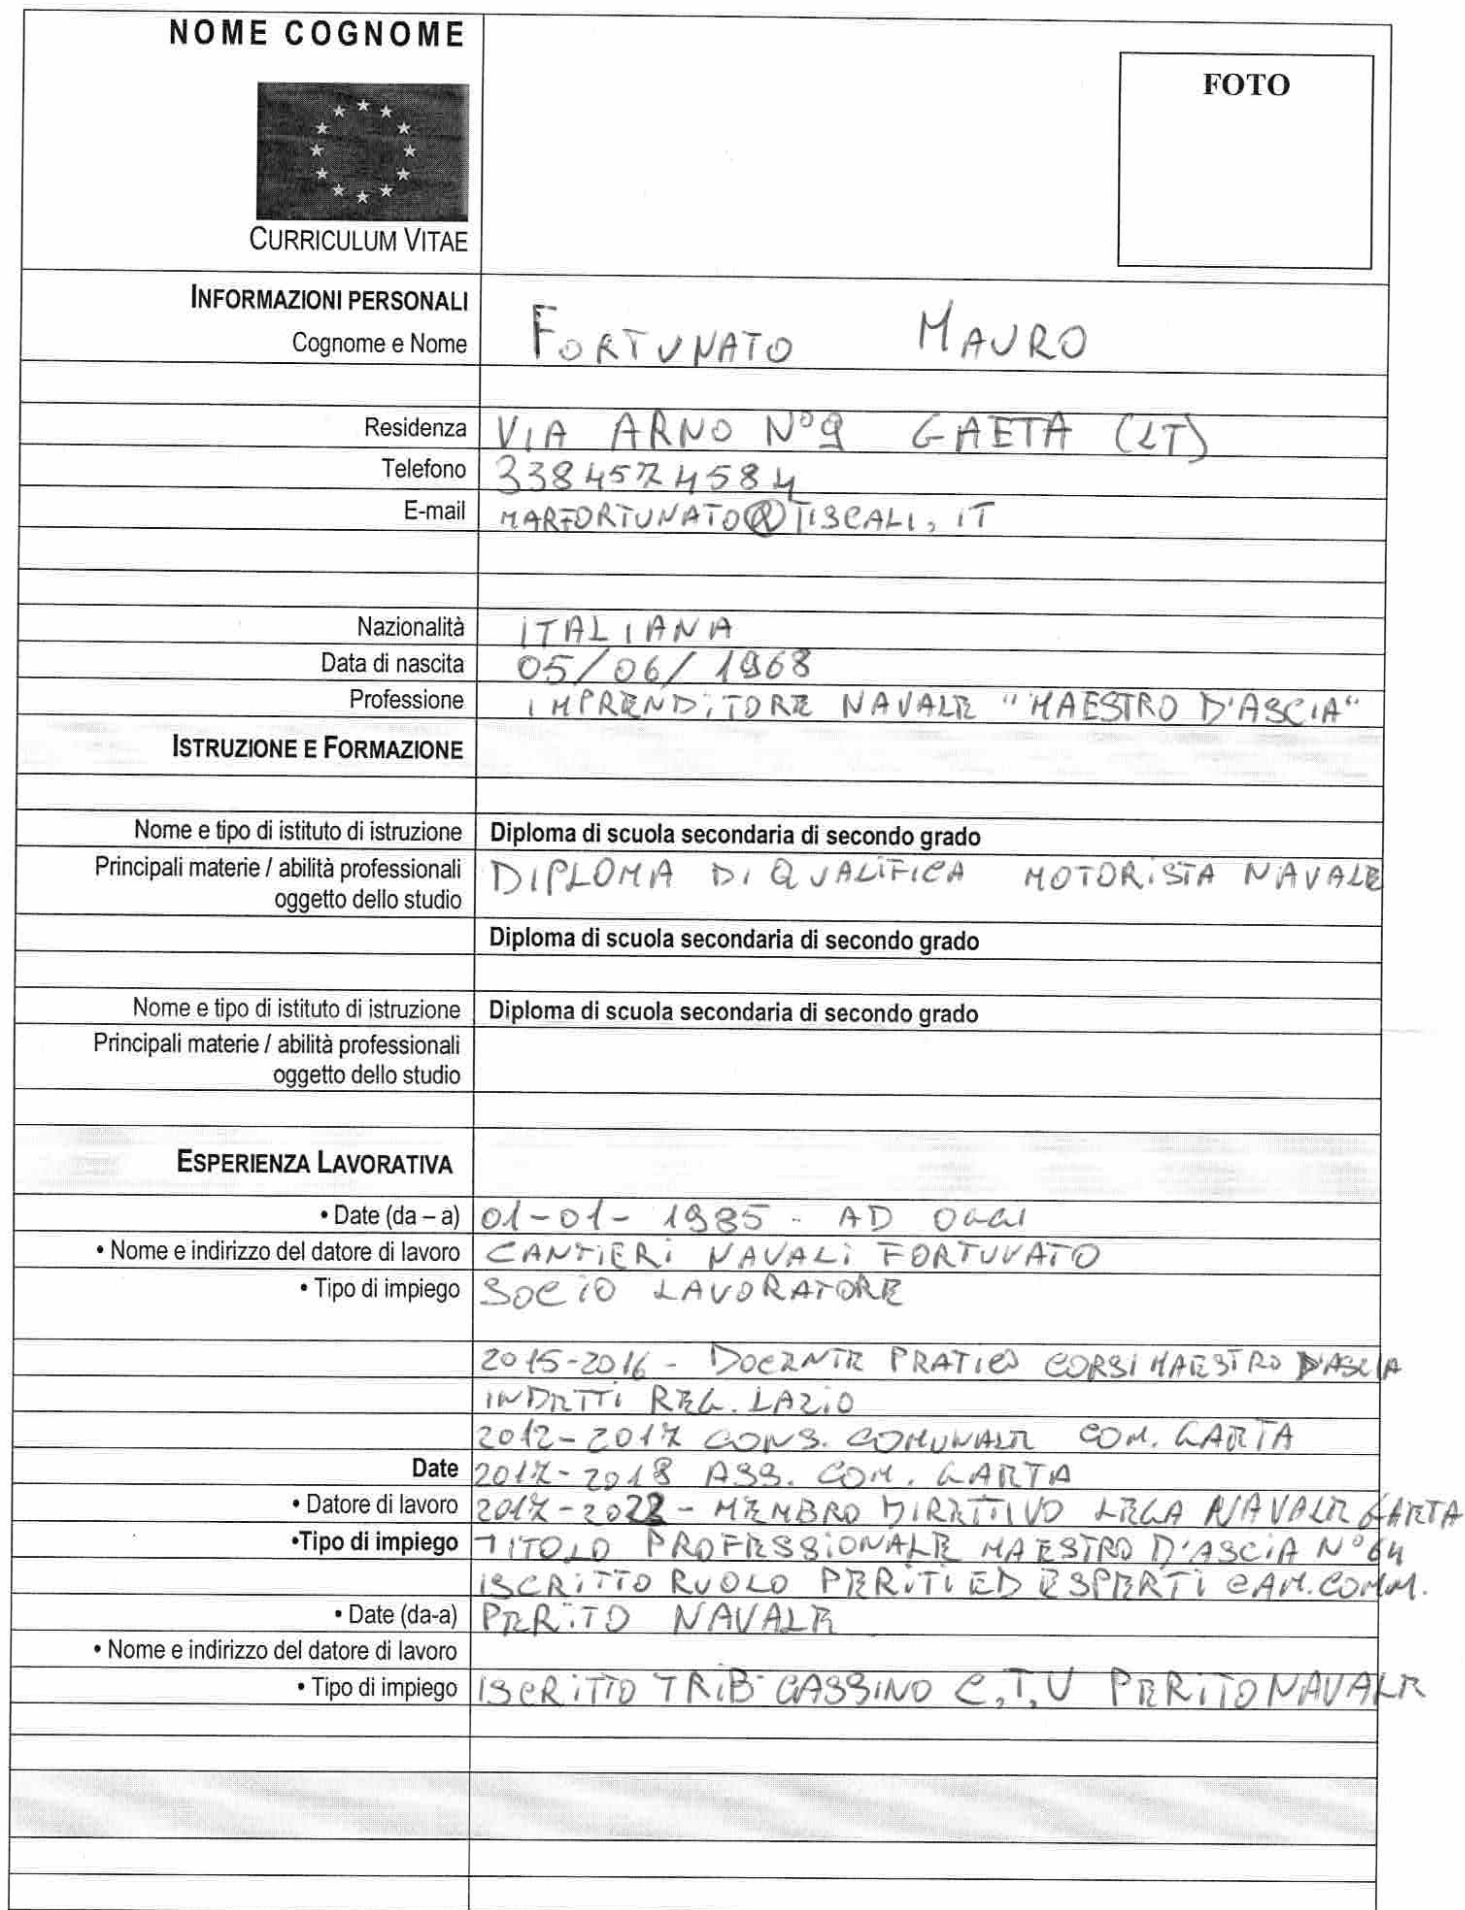 NOME COGNOME
FOTO
CURRICULUM VITAE
INFORMAZIONI PERSONALI
Cognome e Nome FORTUNATO MAURO
Residenza VIA ARNO N°9 GAETA (LT)
Telefono 3384574584
E-mail MARFORTUNATO@TISCALI.IT
Nazionalità ITALIANA
Data di nascita 05/06/1968
Professione IMPRENDITORE NAVALE "MAESTRO D'ASCIA"
ISTRUZIONE E FORMAZIONE
Nome e tipo di istituto di istruzione Diploma di scuola secondaria di secondo grado
Principali materie / abilità professionali DIPLOMA DI QUALIFICA MOTORISTA NAVALE
oggetto dello studio
Diploma di scuola secondaria di secondo grado
Nome e tipo di istituto di istruzione Diploma di scuola secondaria di secondo grado
Principali materie / abilità professionali
oggetto dello studio
ESPERIENZA LAVORATIVA
• Date (da – a) 01-01-1985 - AD OGGI
• Nome e indirizzo del datore di lavoro CANTIERI NAVALI FORTUNATO
• Tipo di impiego SOCIO LAVORATORE
2015-2016 - DOCENTE PRATICO CORSI MAESTRO D'ASCIA
INDETTI REG. LAZIO
2012-2017 CONS. COMUNALE COM. GAETA
Date 2017-2018 ASS. COM. GAETA
• Datore di lavoro 2017-2022 - MEMBRO DIRETTIVO LEGA NAVALE GAETA
•Tipo di impiego TITOLO PROFESSIONALE MAESTRO D'ASCIA N°64
ISCRITTO RUOLO PERITI ED ESPERTI CAM. COMM.
• Date (da-a) PERITO NAVALE
• Nome e indirizzo del datore di lavoro
• Tipo di impiego ISCRITTO TRIB. CASSINO C.T.U PERITO NAVALE